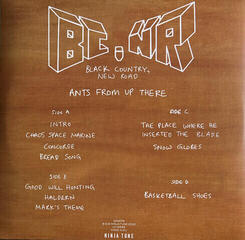 BC,NR
BLACK COUNTRY,
NEW ROAD
ANTS FROM UP THERE
SIDE A
INTRO
CHAOS SPACE MARINE
CONCORDE
BREAD SONG
SIDE B
GOOD WILL HUNTING
HALDERN
MARK'S THEME
SIDE C
THE PLACE WHERE HE
INSERTED THE BLADE
SNOW GLOBES
SIDE D
BASKETBALL SHOES
NINJA TUNE